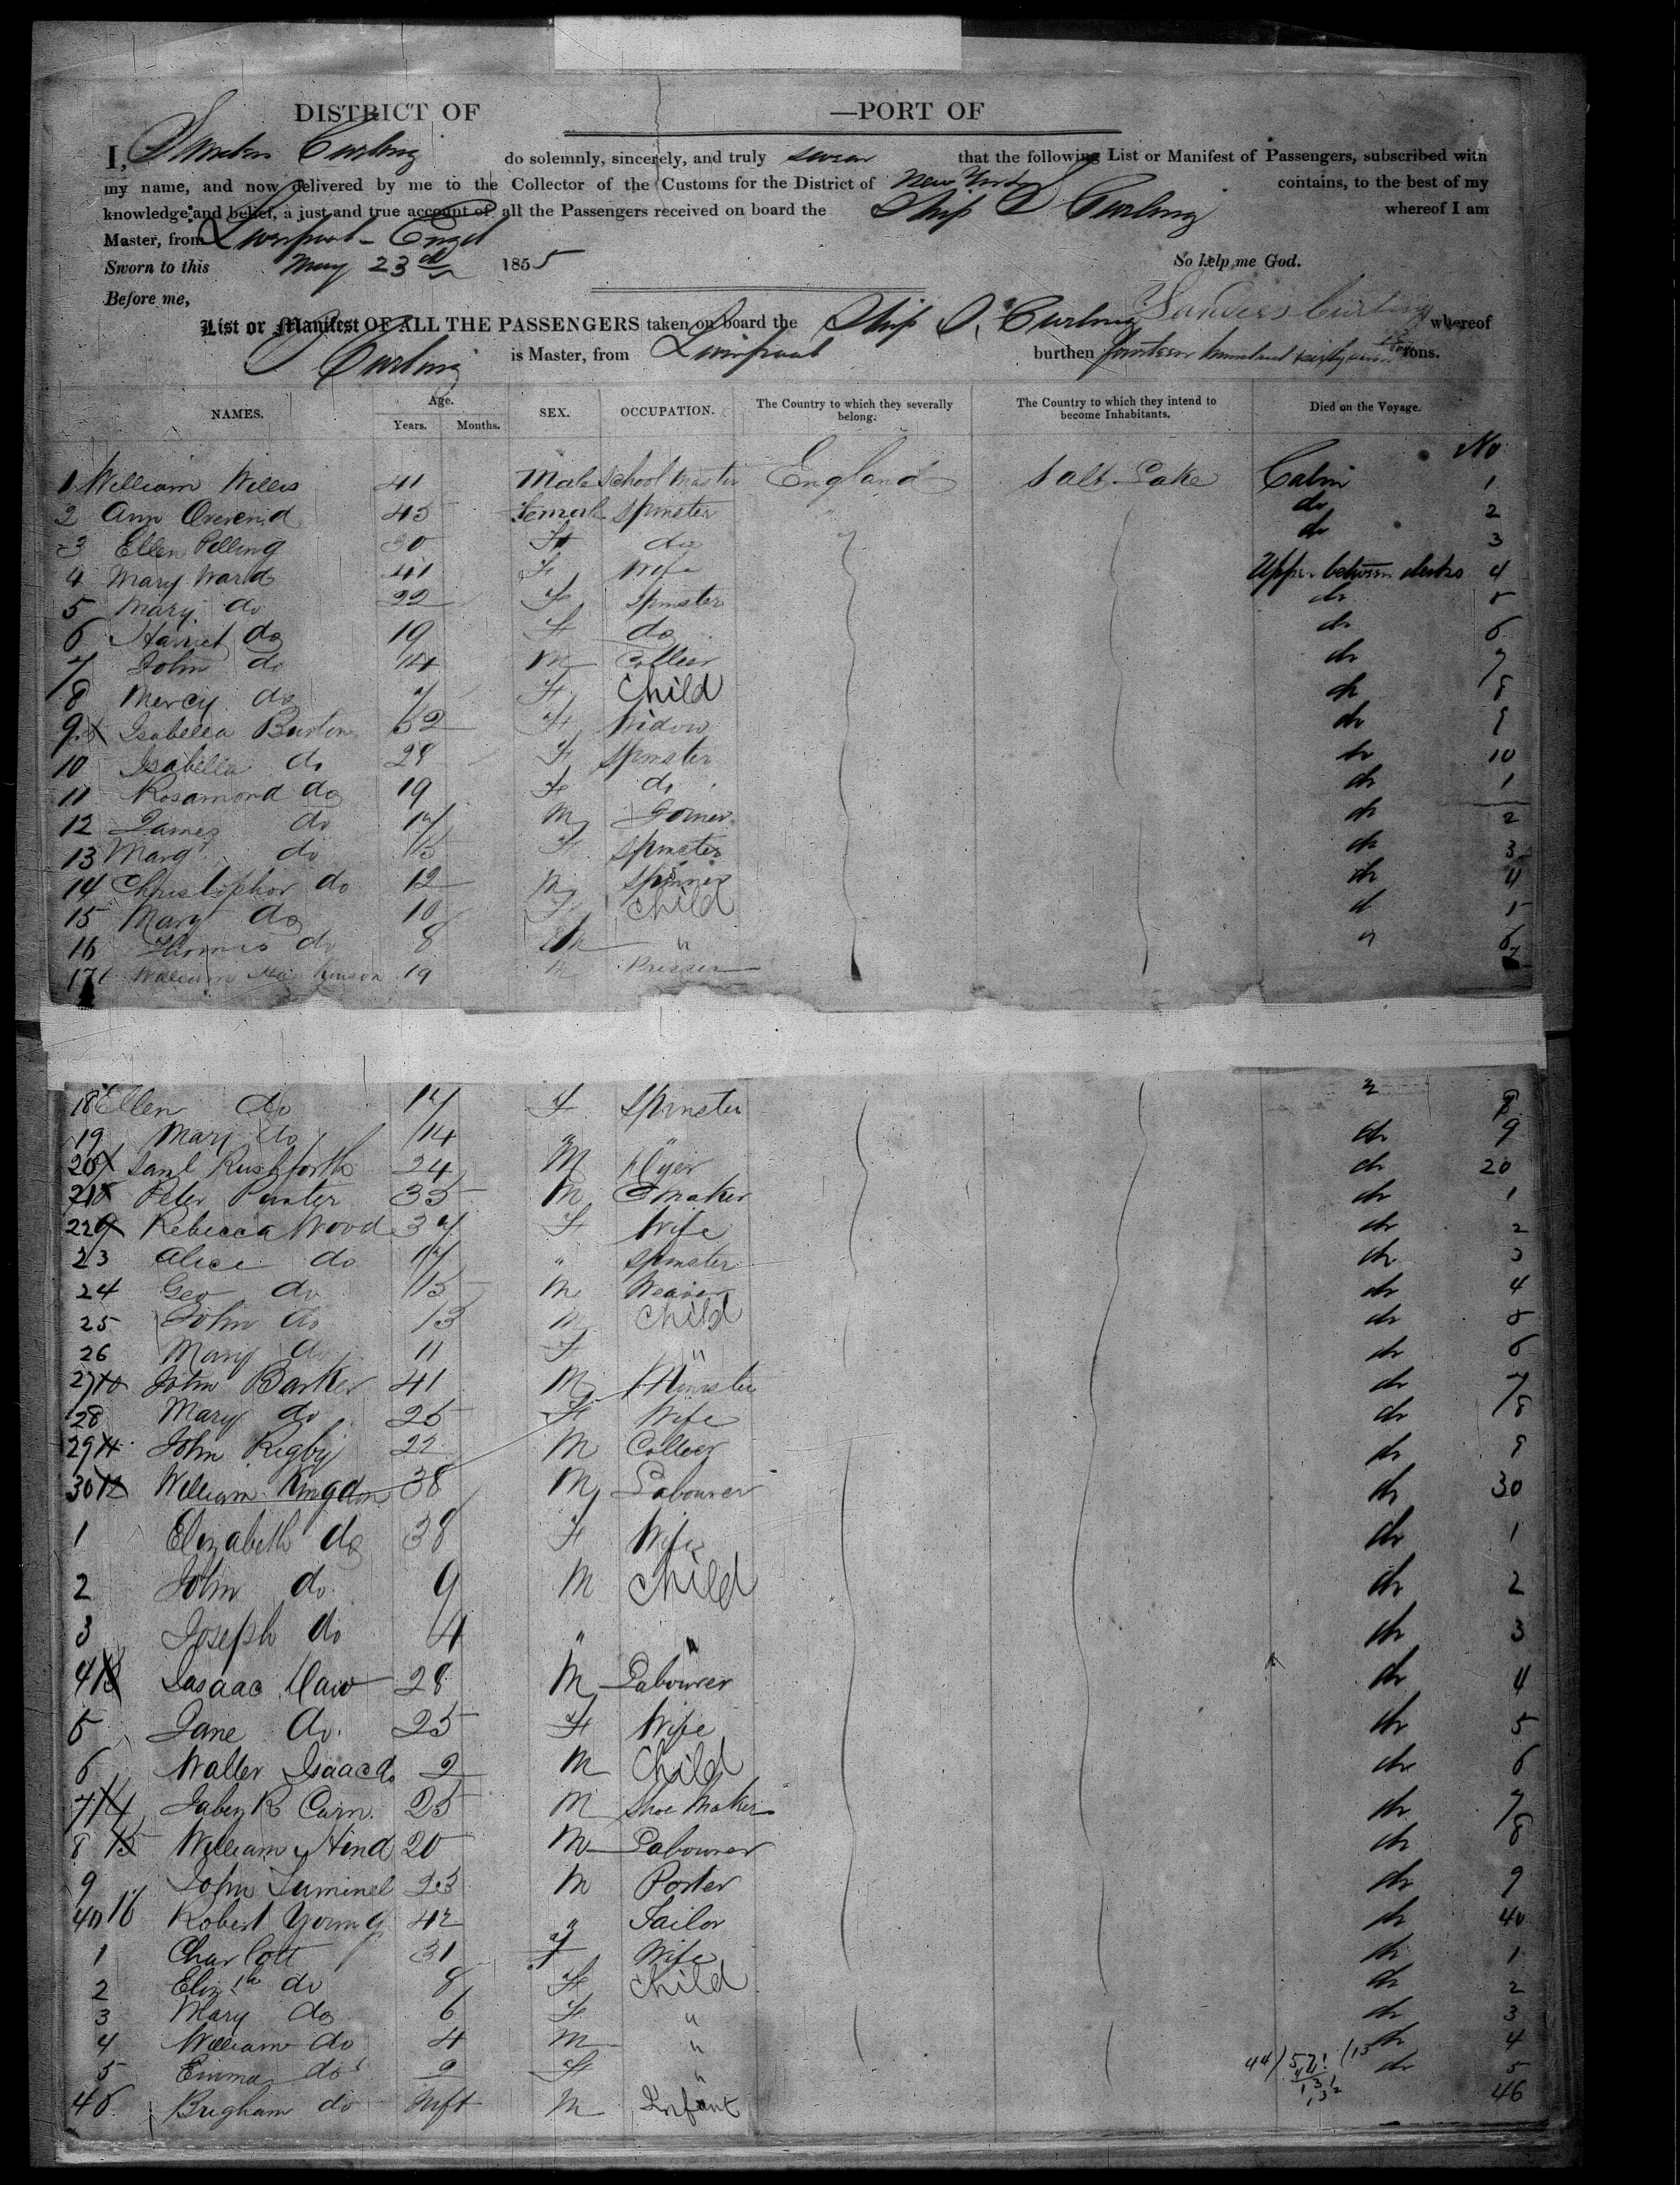 DISTRICT OF —PORT OF
I, Sanders Curling do solemnly, sincerely, and truly swear that the following List or Manifest of Passengers, subscribed with
my name, and now delivered by me to the Collector of the Customs for the District of New York contains, to the best of my
knowledge and belief, a just and true account of all the Passengers received on board the Ship S Curling whereof I am
Master, from Liverpool - Engd
Sworn to this May 23d 1855 So help me God.
Before me, Sanders Curling
List or Manifest OF ALL THE PASSENGERS taken on board the Ship S. Curling whereof
S Curling is Master, from Liverpool burthen fourteen hundred & sixty seven tons.
NAMES. Age. Years. Months. SEX. OCCUPATION. The Country to which they severally belong. The Country to which they intend to become Inhabitants. Died on the Voyage.
No
1 William Willis 41 Male School Master England Salt Lake Cabin 1
2 Ann Overend 45 Female Spinster do 2
3 Ellen Pilling 30 F do do 3
4 Mary Ward 41 F Wife Upper between decks 4
5 Mary do 22 F Spinster do 5
6 Harriet do 19 F do do 6
7 John do 14 M Collier do 7
8 Mercy do 7 F Child do 8
9 Isabella Burton 52 F Widow do 9
10 Isabella do 28 F Spinster do 10
11 Rosamond do 19 F do do 1
12 James do 17 M do 2
13 Margt do 15 F Spinster do 3
14 Christopher do 12 M do 4
15 Mary do 10 F Child d 5
16 Thomas do 8 M " " 6
17 William 19 M Presser 7
18 Ellen do 17 F Spinster " 8
19 Mary do 14 " " do 9
20 Saml Rushforth 24 M Dyer do 20
21 Peter 35 M maker do 1
22 Rebecca Wood 37 F Wife do 2
23 Alice do 17 " Spinster do 3
24 Geo do 15 M Weaver do 4
25 John do 13 M Child do 5
26 Mary do 11 F " do 6
27 10 John Barker 41 M Minister do 7
28 Mary do 25 F Wife do 8
29 11 John Rigby 22 M Collier do 9
30 12 William Kingdon 38 M Labourer do 30
1 Elizabeth do 38 F Wife do 1
2 John do 9 M Child do 2
3 Joseph do 4 " " do 3
4 13 Isaac Daw 28 M Labourer do 4
5 Jane do. 25 F Wife do 5
6 Walter Isaac do 2 M Child do 6
7 14 Jabez R Carn. 25 M Shoe Maker do 7
8 15 William Hind 20 M Labourer do 8
9 John 23 M Porter do 9
40 16 Robert Young 42 " Tailor do 40
1 Charlott 31 F Wife do 1
2 Elizth do 8 F Child do 2
3 Mary do 6 F " do 3
4 William do 4 M " do 4
5 Emma do 2 F " do 5
46 Brigham do Inft M Infant 46